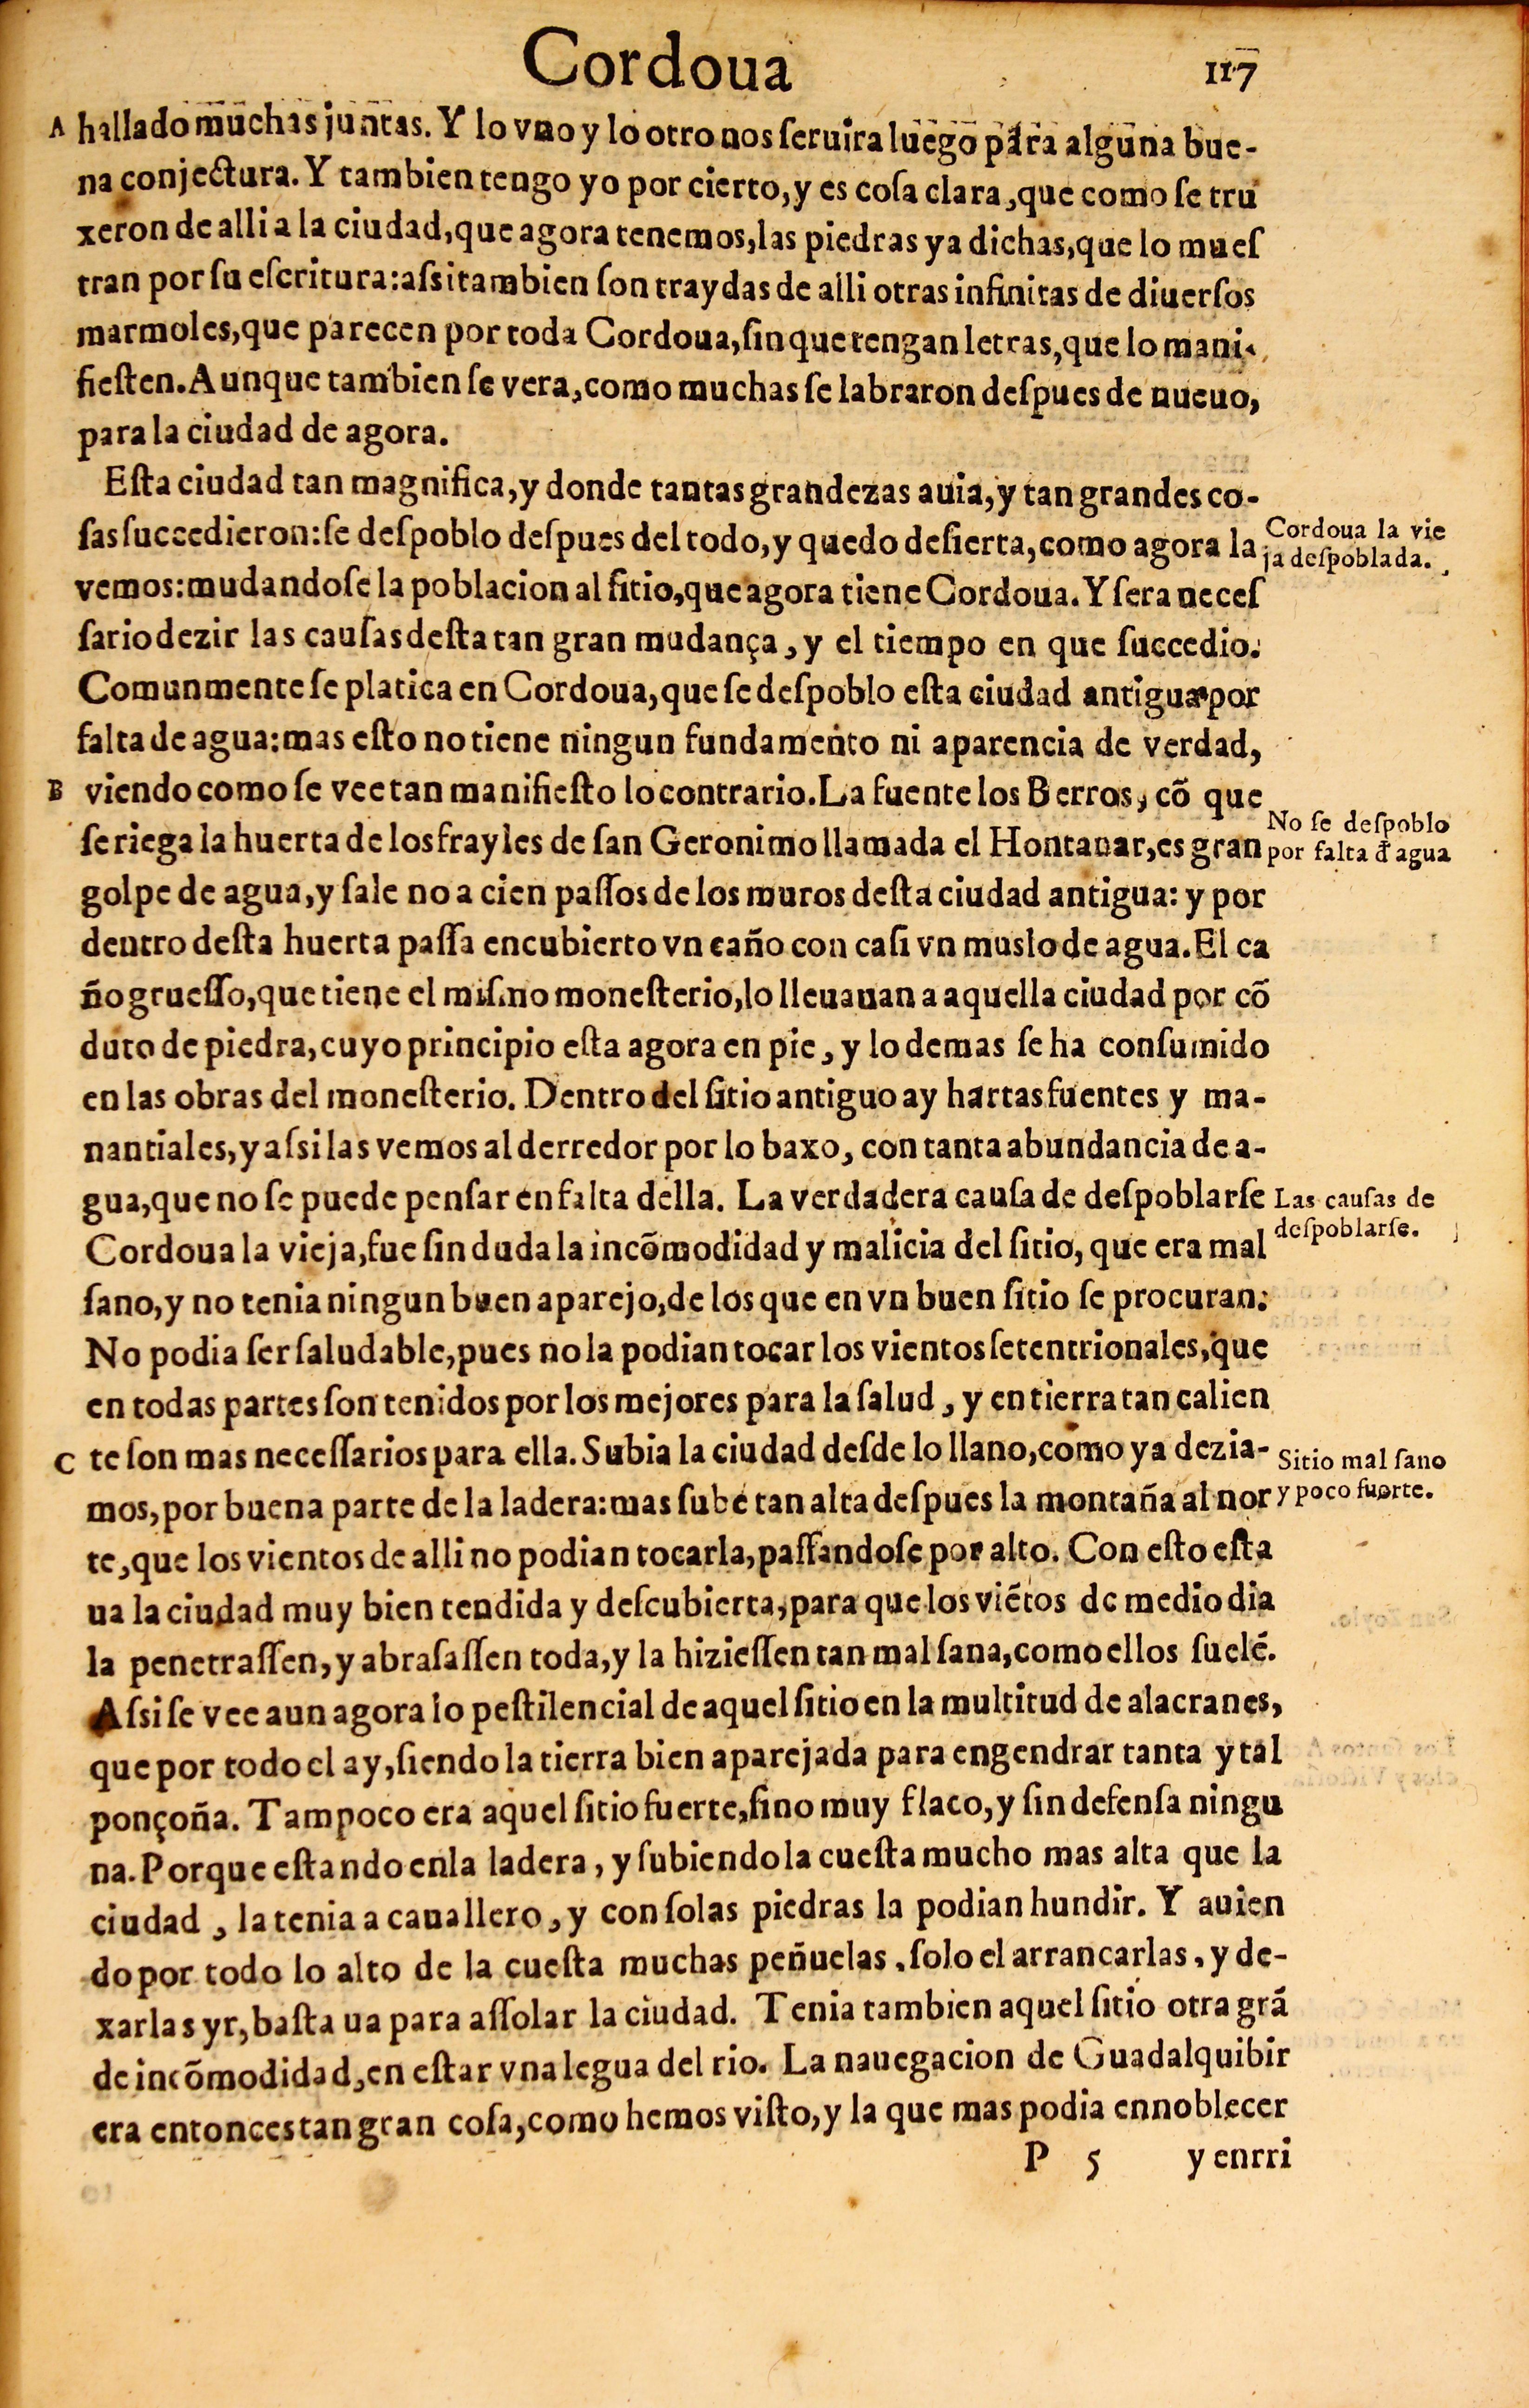 Cordoua
117
A hallado muchas juntas. Y lo vno y lo otro nos ſeruira luego para alguna bue-
na conjectura. Y tambien tengo yo por cierto, y es coſa clara, que como ſe tru
xeron de alli a la ciudad, que agora tenemos, las piedras ya dichas, que lo mueſ
tran por ſu eſcritura: aſsi tambien ſon traydas de alli otras infinitas de diuerſos
marmoles, que parecen por toda Cordoua, ſin que tengan letras, que lo mani-
fieſten. Aunque tambien ſe vera, como muchas ſe labraron deſpues de nueuo,
para la ciudad de agora.
Eſta ciudad tan magnifica, y donde tantas grandezas auia, y tan grandes co-
ſas ſuccedieron: ſe deſpoblo deſpues del todo, y quedo deſierta, como agora la
Cordoua la vie
ja deſpoblada.
vemos: mudandoſe la poblacion al ſitio, que agora tiene Cordoua. Y ſera neceſ
ſario dezir las cauſas deſta tan gran mudança, y el tiempo en que ſuccedio.
Comunmente ſe platica en Cordoua, que ſe deſpoblo eſta ciudad antigua por
falta de agua: mas eſto no tiene ningun fundamento ni aparencia de verdad,
B viendo como ſe vee tan manifieſto lo contrario. La fuente los Berros, cõ que
ſe riega la huerta de los frayles de ſan Geronimo llamada el Hontanar, es gran
No ſe deſpoblo
por falta đ agua
golpe de agua, y ſale no a cien paſſos de los muros deſta ciudad antigua: y por
dentro deſta huerta paſſa encubierto vn caño con caſi vn muslo de agua. El ca
ño grueſſo, que tiene el miſmo moneſterio, lo lleuauan a aquella ciudad por cõ
duto de piedra, cuyo principio eſta agora en pie, y lo demas ſe ha conſumido
en las obras del moneſterio. Dentro del ſitio antiguo ay hartas fuentes y ma-
nantiales, y aſsi las vemos al derredor por lo baxo, con tanta abundancia de a-
gua, que no ſe puede penſar en falta della. La verdadera cauſa de deſpoblarſe
Las cauſas de
deſpoblarſe.
Cordoua la vieja, fue ſin duda la incõmodidad y malicia del ſitio, que era mal
ſano, y no tenia ningun buen aparejo, de los que en vn buen ſitio ſe procuran.
No podia ſer ſaludable, pues no la podian tocar los vientos ſetentrionales, que
en todas partes ſon tenidos por los mejores para la ſalud, y en tierra tan calien
C te ſon mas neceſſarios para ella. Subia la ciudad deſde lo llano, como ya dezia-
Sitio mal ſano
y poco fuerte.
mos, por buena parte de la ladera: mas ſube tan alta deſpues la montaña al nor
te, que los vientos de alli no podian tocarla, paſſandoſe por alto. Con eſto eſta
ua la ciudad muy bien tendida y deſcubierta, para que los viẽtos de medio dia
la penetraſſen, y abraſaſſen toda, y la hizieſſen tan mal ſana, como ellos ſuelẽ.
Aſsi ſe vee aun agora lo peſtilencial de aquel ſitio en la multitud de alacranes,
que por todo el ay, ſiendo la tierra bien aparejada para engendrar tanta y tal
ponçoña. Tampoco era aquel ſitio fuerte, ſino muy flaco, y ſin defenſa ningu
na. Porque eſtando enla ladera, y ſubiendo la cueſta mucho mas alta que la
ciudad, la tenia a cauallero, y con ſolas piedras la podian hundir. Y auien
do por todo lo alto de la cueſta muchas peñuelas, ſolo el arrancarlas, y de-
xarlas yr, baſta ua para aſſolar la ciudad. Tenia tambien aquel ſitio otra grã
de incõmodidad, en eſtar vna legua del rio. La nauegacion de Guadalquibir
era entonces tan gran coſa, como hemos viſto, y la que mas podia ennoblecer
P 5 y enrri